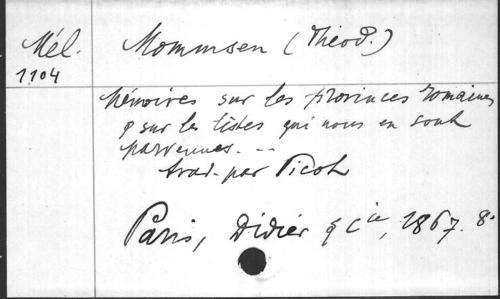 Mél. Mommsen (Théod.)
1104
Mémoires sur les provinces romaines
& sur les listes qui nous en sont
parvenues. ..
trad. par Picot
Paris, Didier & Cie, 1867. 8°